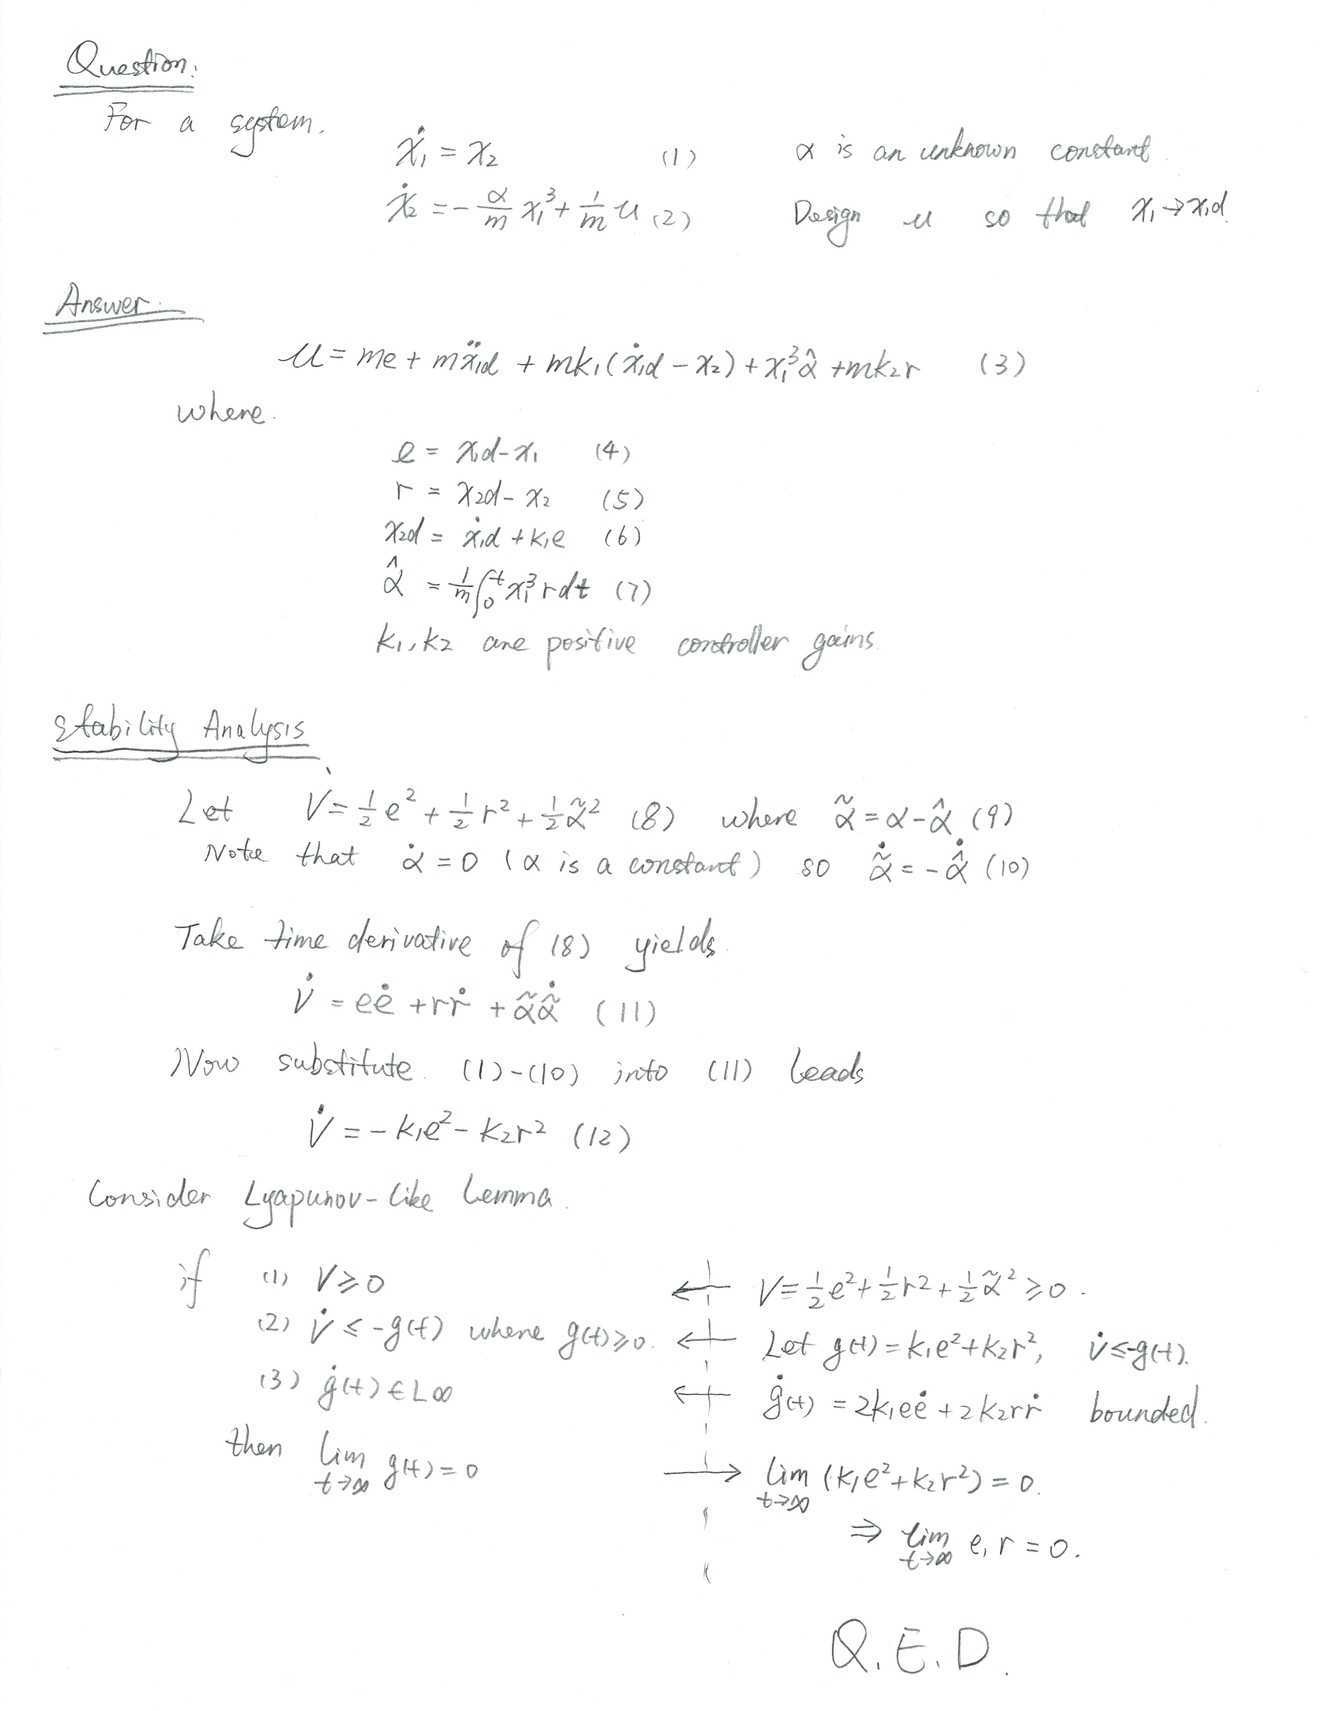 Question:
For a system.
ẋ₁ = x₂ (1) α is an unknown constant.
ẋ₂ = -α/m x₁³ + 1/m u (2) Design u so that x₁→x₁d.
Answer.
u = me + mẍ₁d + mk₁(ẋ₁d - x₂) + x₁³α̂ + mk₂r (3)
where.
e = x₁d - x₁ (4)
r = x₂d - x₂ (5)
x₂d = ẋ₁d + k₁e (6)
α̂ = 1/m ∫₀ᵗ x₁³ r dt (7)
k₁, k₂ are positive controller gains.
Stability Analysis
Let V = 1/2 e² + 1/2 r² + 1/2 α̃² (8) where α̃ = α - α̂ (9)
Note that α̇ = 0 (α is a constant) so α̃̇ = -α̂̇ (10)
Take time derivative of (8) yields.
V̇ = eė + rṙ + α̃α̃̇ (11)
Now substitute. (1)-(10) into (11) leads
V̇ = -k₁e² - k₂r² (12)
Consider Lyapunov-like Lemma.
if (1) V ≥ 0 ← V = 1/2 e² + 1/2 r² + 1/2 α̃² ≥ 0.
(2) V̇ ≤ -g(t) where g(t) ≥ 0. ← Let g(t) = k₁e² + k₂r², V̇ ≤ -g(t).
(3) ġ(t) ∈ L∞ ← ġ(t) = 2k₁eė + 2k₂rṙ bounded.
then lim t→∞ g(t) = 0 → lim t→∞ (k₁e² + k₂r²) = 0.
⇒ lim t→∞ e, r = 0.
Q.E.D.